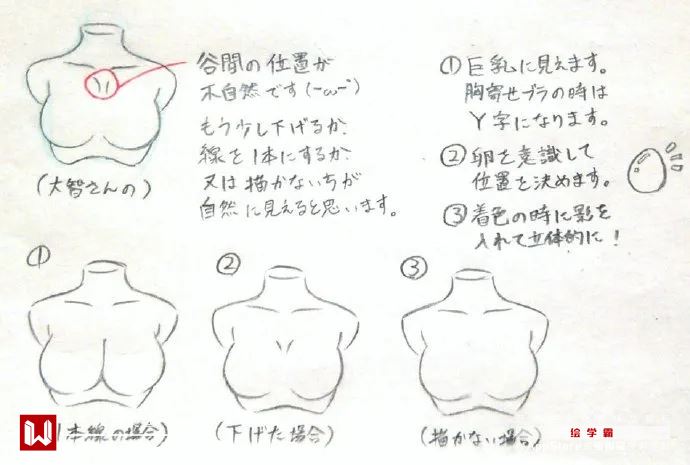 谷間の位置が
不自然です(-ω-)
もう少し下げるか、
線を1本にするか、
又は描かないちが
自然に見えると思います。
(大智さんの)
①巨乳に見えます。
胸寄せブラの時は
Y字になります。
②卵を意識して
位置を決めます。
③着色の時に影を
入れて立体的に!
①
②
③
1本線の場合)
(下げた場合)
(描かない場合)
绘学霸